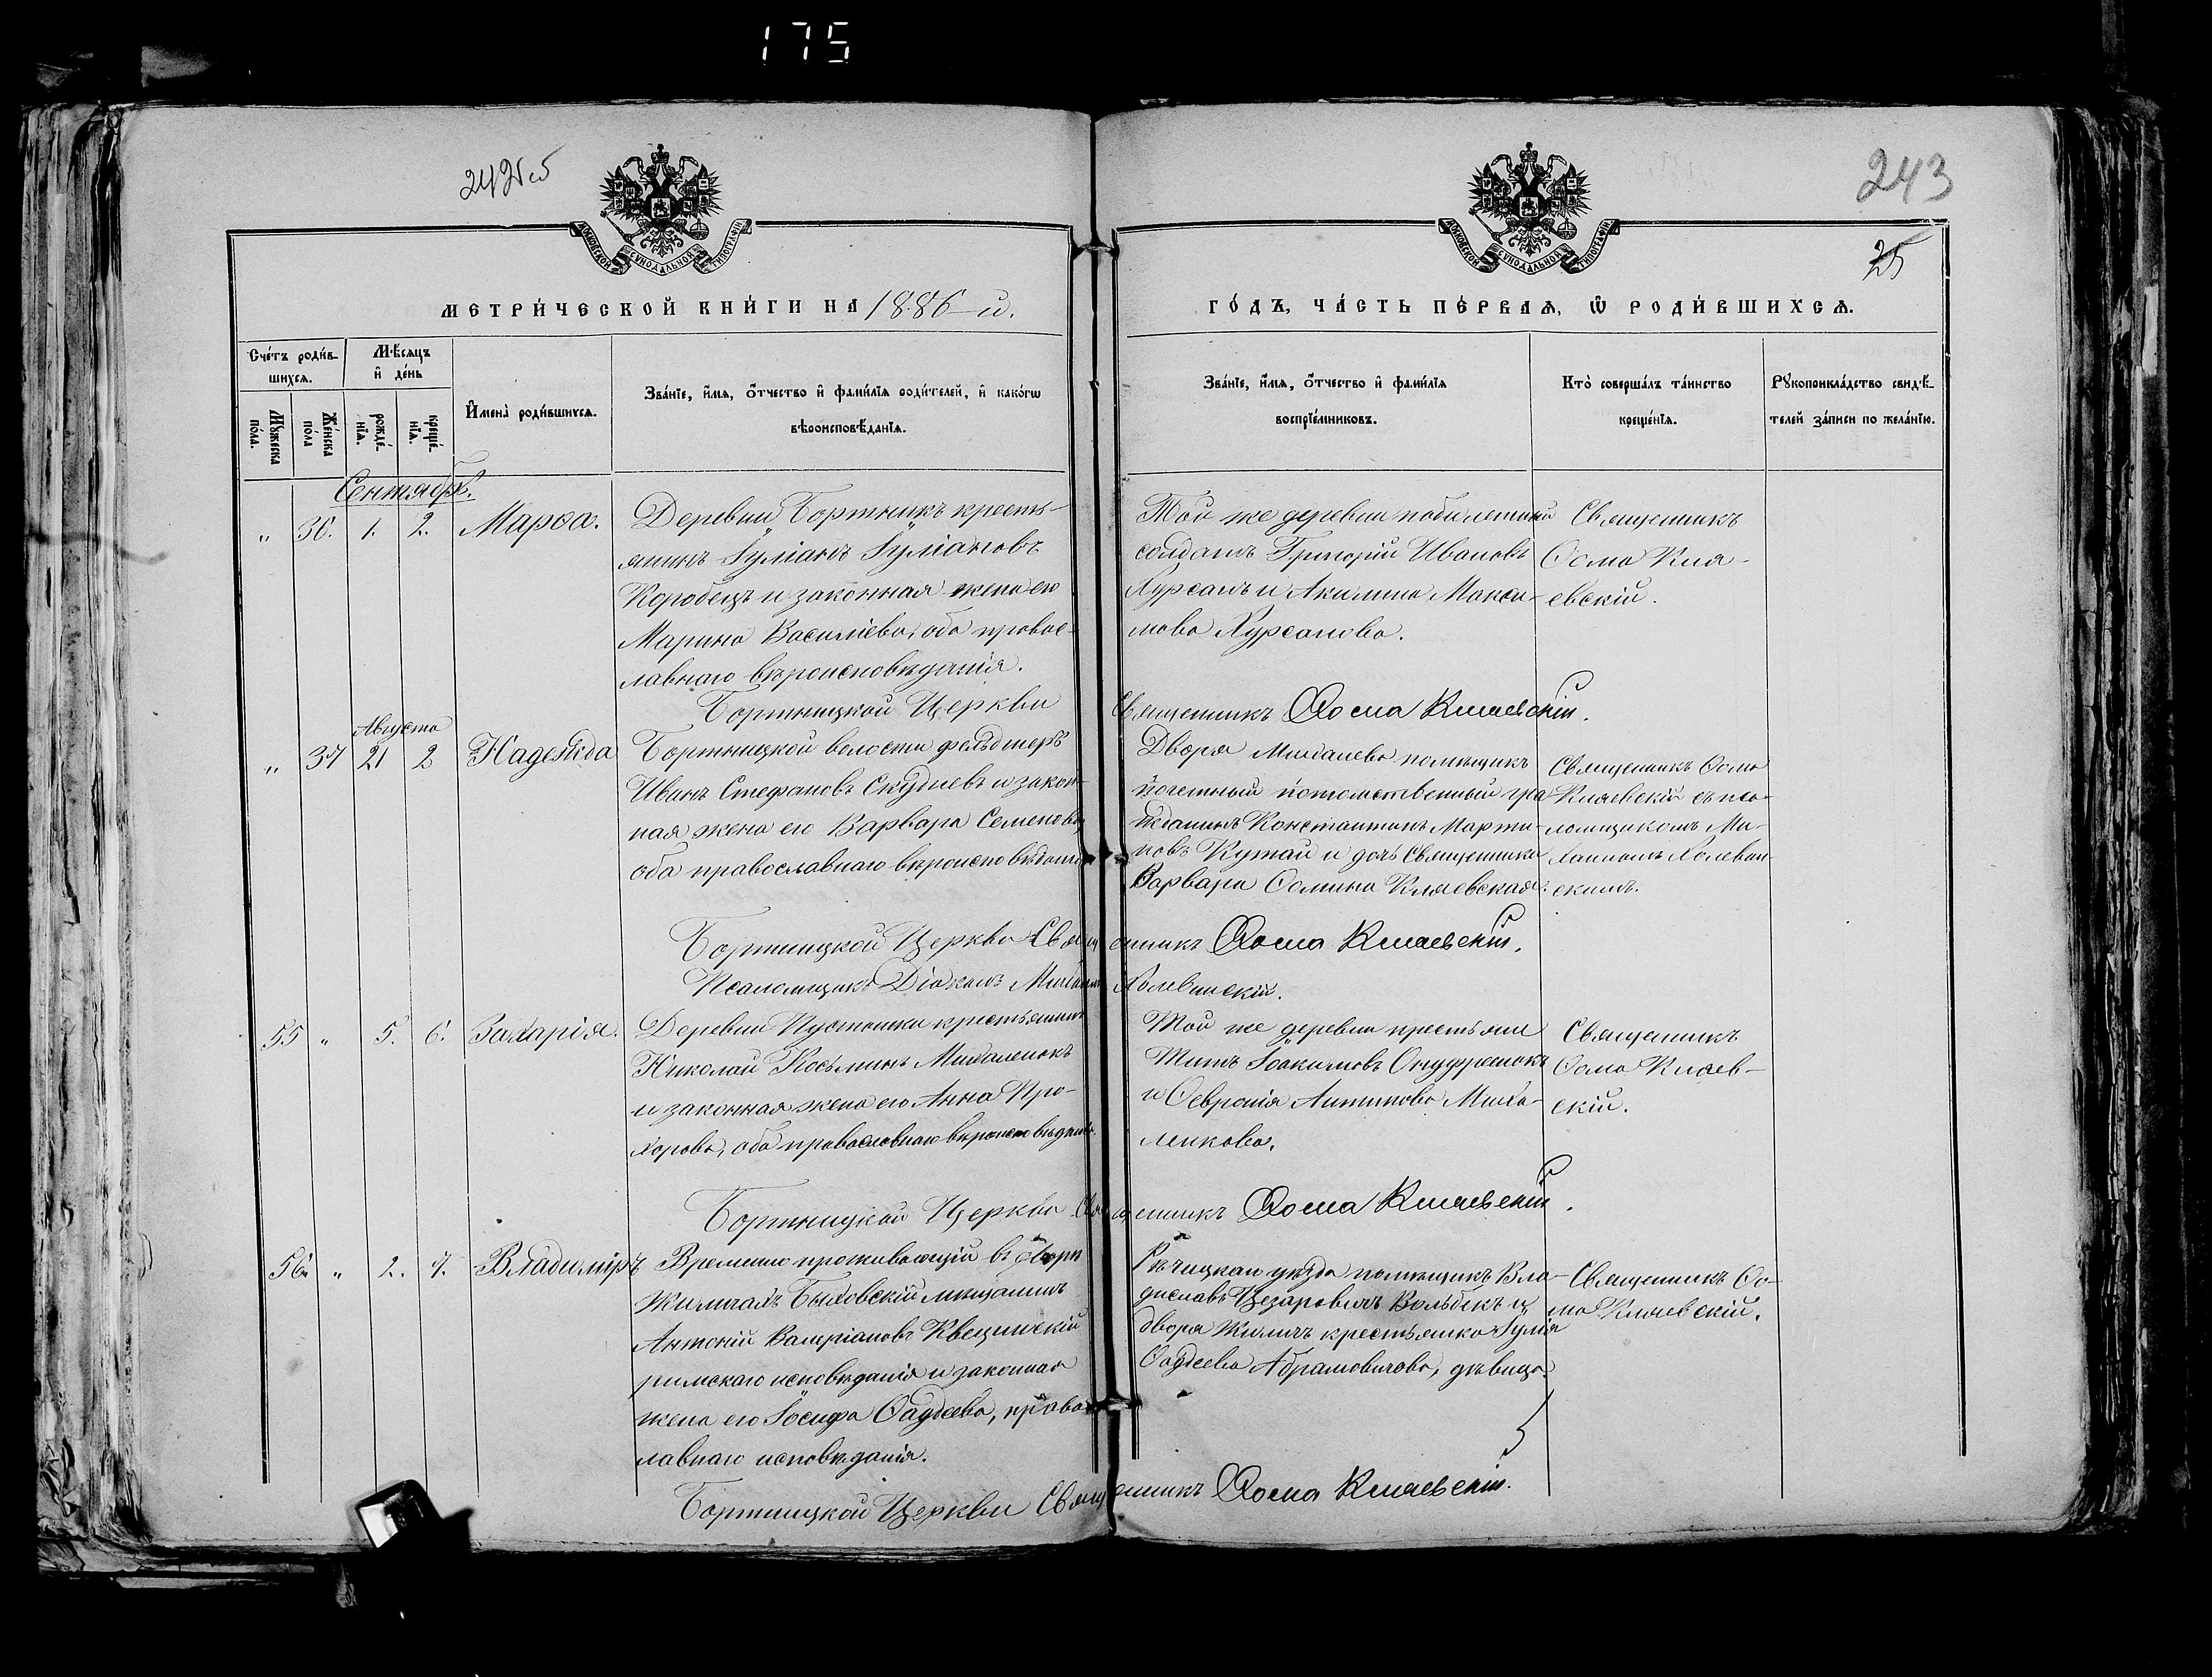 175
242об
243
25
МОСКОВСКОЙ СУНОДАЛЬНОЙ ТИПОГРАФІИ
МОСКОВСКОЙ СУНОДАЛЬНОЙ ТИПОГРАФІИ
МЕТРИ́ЧЕСКОЙ КНИ́ГИ НА 1886-й.
ГО́ДЪ, ЧА́СТЬ ПЕ́РВАЯ, Ѡ РОДИ́ВШИХСЯ.
Сче́тъ роди́в-
шихся.
Мѣ́сяцъ
и де́нь
Мꙋ́жеска по́ла.
Же́нска по́ла
рожде́-
нїя.
креще́-
нїя.
Имена̀ роди́вшихся.
Зва́нїе, и́мя, ѻ́тчество и фами́лїя роди́телей, и како́гѡ
вѣроисповѣ́данїя.
Зва́нїе, и́мя, ѻ́тчество и фами́лїя
воспрїе́мниковъ.
Кто̀ соверша́лъ та́инство
креще́нїя.
Рꙋкоприкла́дство свидѣ́-
телей за́писи по жела́нїю.
Сентябрь.
" 36. 1. 2. Марѳа.
Деревни Бортникъ кресть-
янинъ Іуліанъ Іуліановъ
Коробецъ и законная жена его
Марина Василіева, оба правос-
лавнаго вѣроисповѣданія.
Той же деревни
солдатъ Григорій Ивановъ
Хурсанъ и Акилина Макси-
мова Хурсанова.
Священникъ
Ѳома Кля-
евскій.
Бортницкой Церкви Священникъ Ѳома Кляевскій.
Августа
" 37 21 2 Надежда
Бортницкой волости фельдшеръ
Иванъ Стефановъ и закон-
ная жена его Варвара Семенова,
оба православнаго вѣроисповѣданія
Двора Михалева помѣщикъ
почетный потомственный гра-
жданинъ Константинъ Марти-
новъ и дочь Священника
Варвара Ѳомина Кляевская.
Священникъ Ѳома
Кляевскій съ пса-
ломщикомъ Ми-
хаиломъ
скимъ.
Бортницкой Церкви Священникъ Ѳома Кляевскій.
Псаломщикъ Діаконъ Михаилъ
55 " 5. 6. Захарія.
Деревни Пустоники крестьянинъ
Николай Косьминъ Михаленокъ
и законная жена его Анна Про-
хорова, оба православнаго вѣроисповѣданія.
Той же деревни крестьяне
Титъ Іоакимовъ Онуфренокъ
и Ѳевронія Антипова Миха-
ленкова.
Священникъ
Ѳома Кляев-
скій.
Бортницкой Церкви Священникъ Ѳома Кляевскій.
56. " 2. 7. Владиміръ
Временно проживающій въ дворѣ
Жиличахъ Быховскій мѣщанинъ
Антоній Валеріановъ Квецинскій
римскаго исповѣданія и законная
жена его Іосифа Ѳадѣева, правос-
лавнаго исповѣданія.
Рѣчицкаго уѣзда помѣщикъ Вла-
диславъ Цезаровичъ Вольбекъ и
двора Жиличъ крестьянка Іулія
Ѳадѣева Абрамовичова, дѣвица.
Священникъ Ѳо-
ма Кляевскій.
Бортницкой Церкви Священникъ Ѳома Кляевскій.